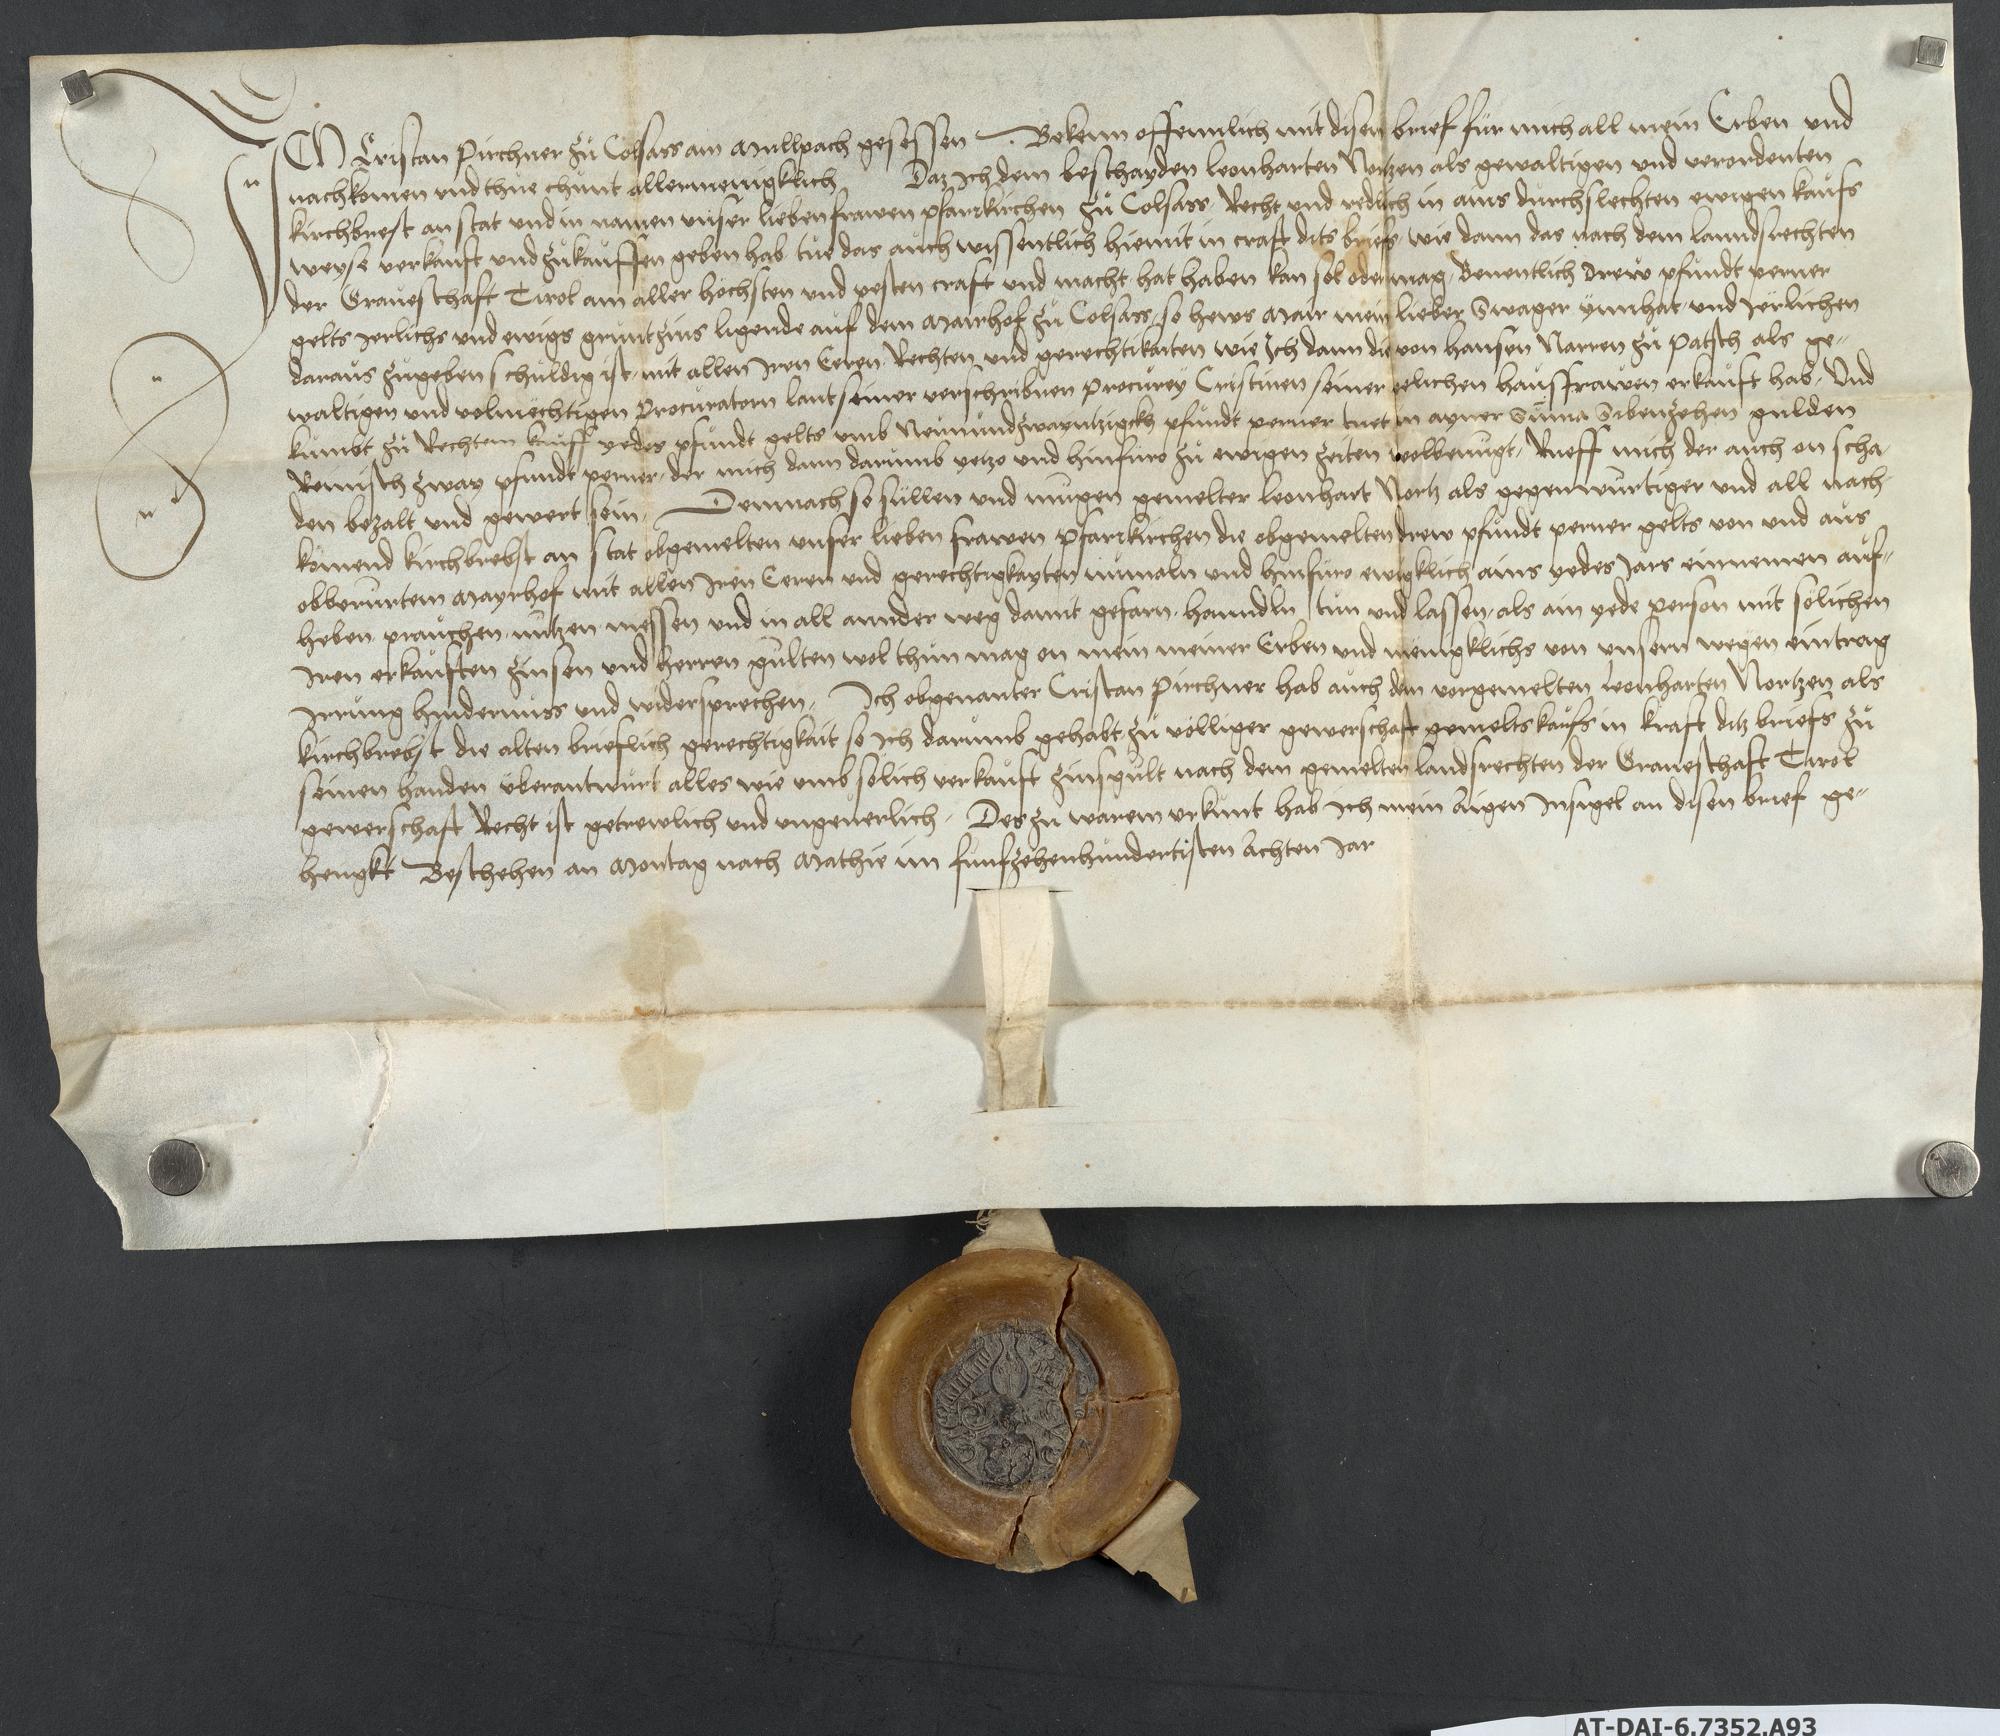 Ich Cristan Pirchner zu Colsass am Mullpach gesessen Bekenn offennlich mit disen brief für mich all mein Erben und
nachkomen und thue chunt allermenigklich Daz Ich dem beschayden Leonharten Nortzen als gewaltigen und verordenten
kirchbrest an stat und in namen unser lieben frawen pfarrkirchen zu Colsass Recht und redlich in ains durchslechten ewigen kaufs
weyse verkauft und zukauffen geben hab tue das auch wissentlich hiemit in craft dits briefs wie dann das nach dem lanndsrechten
der Graueschaft Tirol am aller höchsten und vesten craft und macht hat haben kan sol oder mag, Benentlich drew pfundt perner
gelts Jerlichs und ewigs gruntzins ligende auf dem Mairhof zu Colsass, so hews Mair mein lieber Swager ynnhat und Jerlichen
daraus zugeben schuldig ist, mit allen Iren Eeren Rechten und gerechtikaiten wie Ich dann die von hansen Narren zu Patsch als ge=
waltigen und volmechtigen Procuratorn laut seiner verschribnen procurey Cristinen seiner eelichen hausfrawen erkauft hab, Und
kumbt zu Rechtem kauff yedes pfundt gelts umb Neunundzwaintzigckh pfundt perner tuet in ayner Suma Sibenzehen gulden
Reinisch zway pfundt perner, der mich dann darumb yetzo und hinfuro zu ewigen zeiten wolbenügt, Rueff mich der auch on scha=
den bezalt und gewert sein, Demnach so süllen und mügen gemelter Leonhart Nortz als gegenwürtiger und all nach=
komend kirchbrebst an stat obgemelten unser lieben frawen pfarrkirchen die obgemelten drew pfundt perner gelts von und aus
obberürtem Mayrhof mit allen Iren Eeren und gerechtigkayten nümaln und hinfuro ewigklich ains yedes Jars einnemen auf=
heben, prauchen, nützen, niessen und in all annder weg damit gefarn, hanndln, tun und lassen, als ain yede person mit solichen
Iren erkauften zinsen und herren gülten wol thun mag on mein meiner Erben und menigklichs von unsern wegen eintrag
Irrung hindernuss und widersprechen, Ich obgenanter Cristan Pirchner hab auch dem vorgemelten Leonharten Nortzen als
kirchbrebst die alten brieflich gerechtigkait so Ich darumb gehabt zu völliger gewerschaft gemelts kaufs in kraft ditz briefs zu
seinen handen überantwurt alles wie umb solich verkauft zinsgült nach dem gemelten landsrechten der Graueschaft Tirol
gewerschaft Recht ist getrewlich und ungeuerlich, Des zu warem urkunt hab Ich mein aigen Insigel an disen brief ge=
hengkt Beschehen an Montag nach Mathie im funfzehenhundertisten Achten Jar
AT-DAI-6.7352.A93